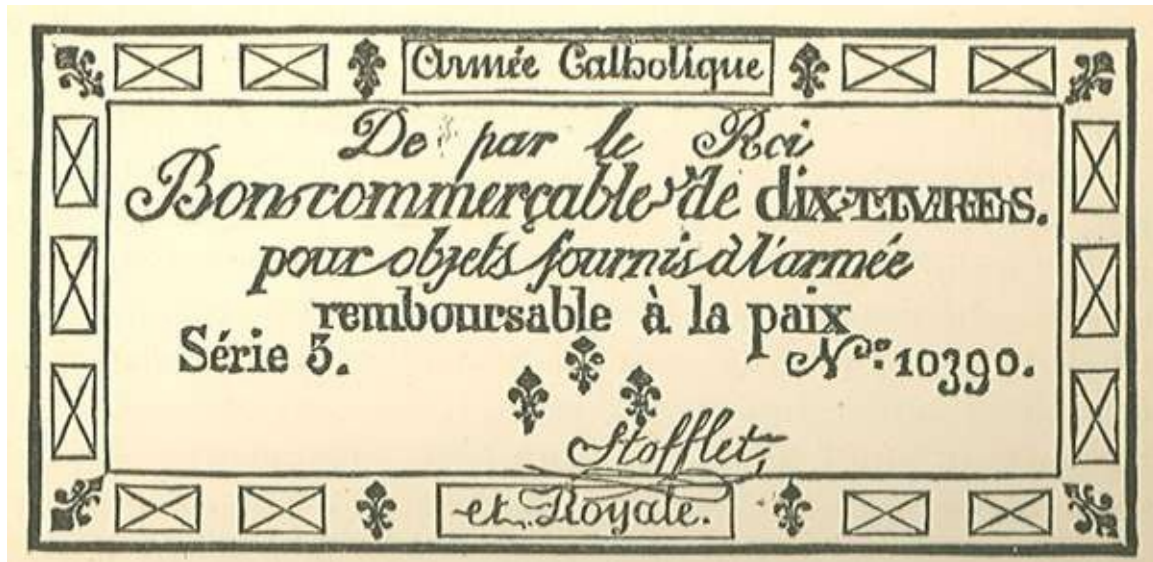 Armée Catholique
De par le Roi
Bon commerçable de dix LIVRES.
pour objets fournis à l'armée
remboursable à la paix
Série 3.
N.º: 10390.
Stofflet,
et Royale.